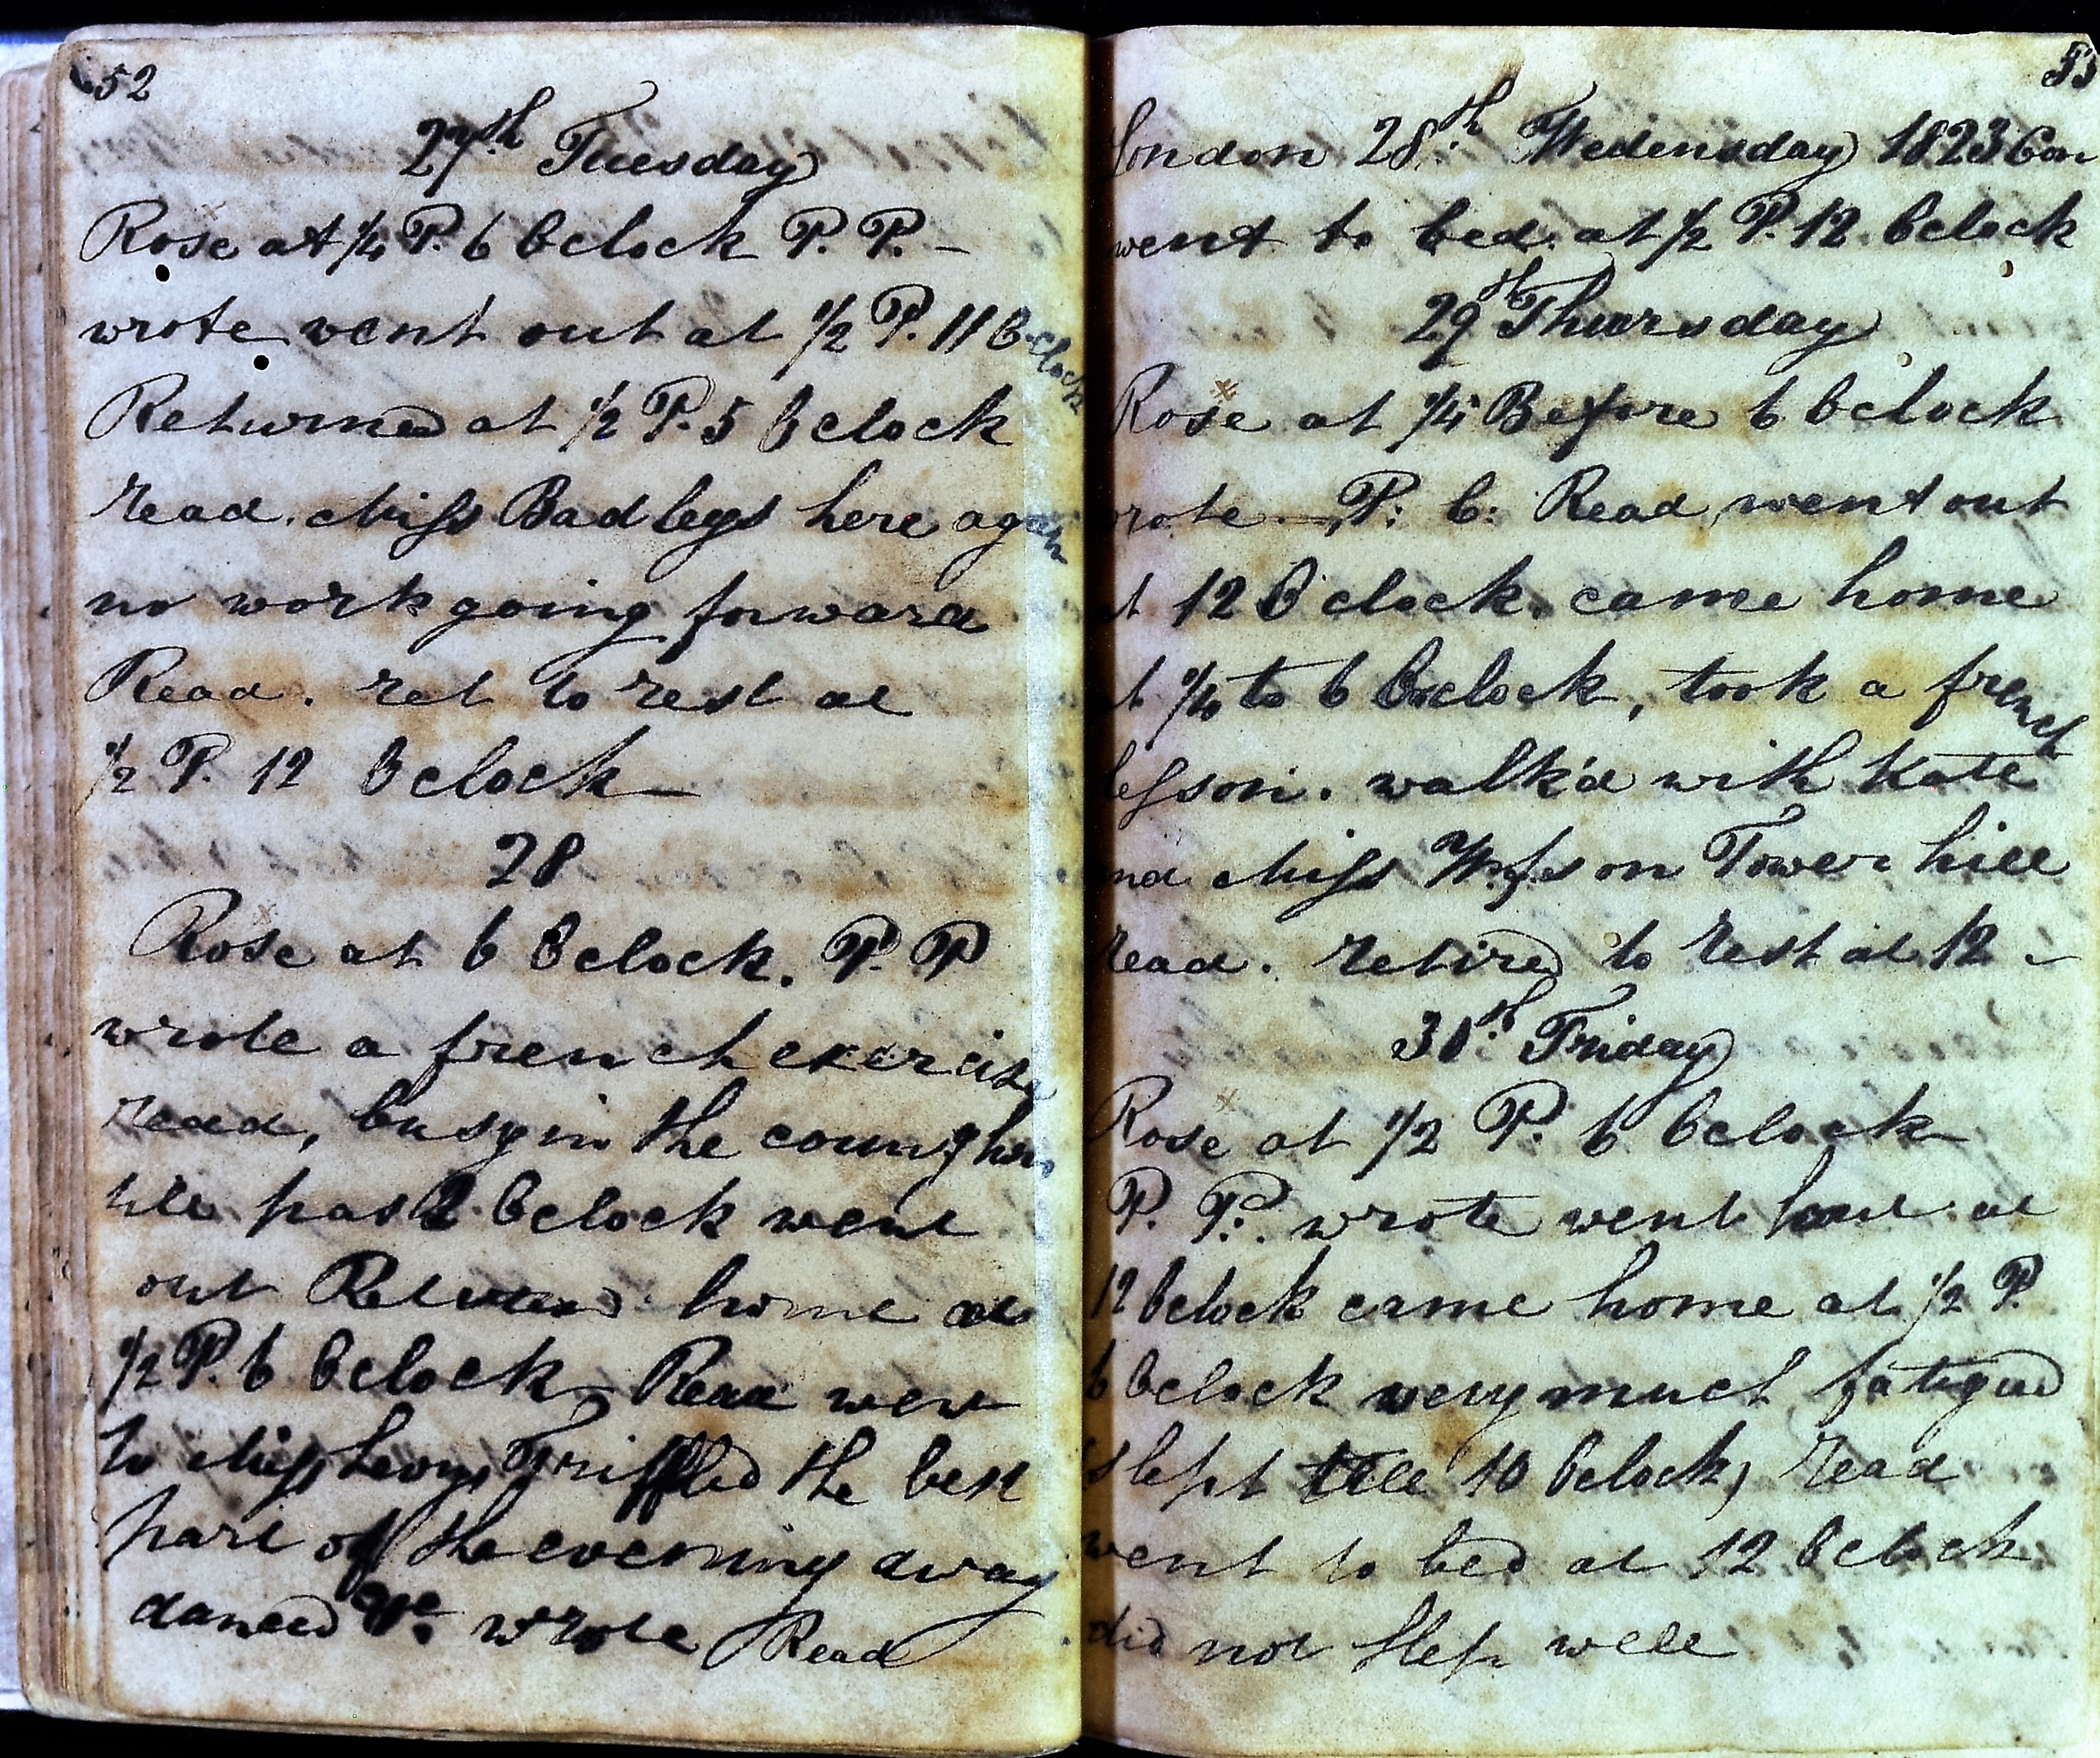 52
27th Tuesday
Rose at 1/4 P. 6 Oclock P. P. –
wrote went out at 1/2 P. 11 Oclock
Returned at 1/2 P. 5 Oclock
read. Miss Badleys here again
no work going forward
Read. ret to rest at
1/2 P. 12 Oclock –
28
Rose at 6 Oclock. P. P
wrote a french exercise
read, busy in the
till past 2 Oclock went
out Returned home at
1/2 P. 6 Oclock Read went
to Miss Levys Triffled the best
part of the evening away
danced &c. wrote Read
53
London 28th Wedensday 1823 Con
went to bed. at 1/2 P. 12 Oclock
29th Thursday
Rose at 1/4 Before 6 Oclock
wrote – P: C: Read, went out
at 12 O clock. came home
at 1/4 to 6 Oclock, took a french
lesson. walk'd with Kate
and Miss on Tower hill
read. retired to rest at 12 –
30th Friday
Rose at 1/2 P. 6 Oclock
P. P. wrote went out at
12 Oclock came home at 1/2 P.
6 Oclock very much fatigued
slept till 10 Oclock, read
went to bed at 12 Oclock
did not slep well